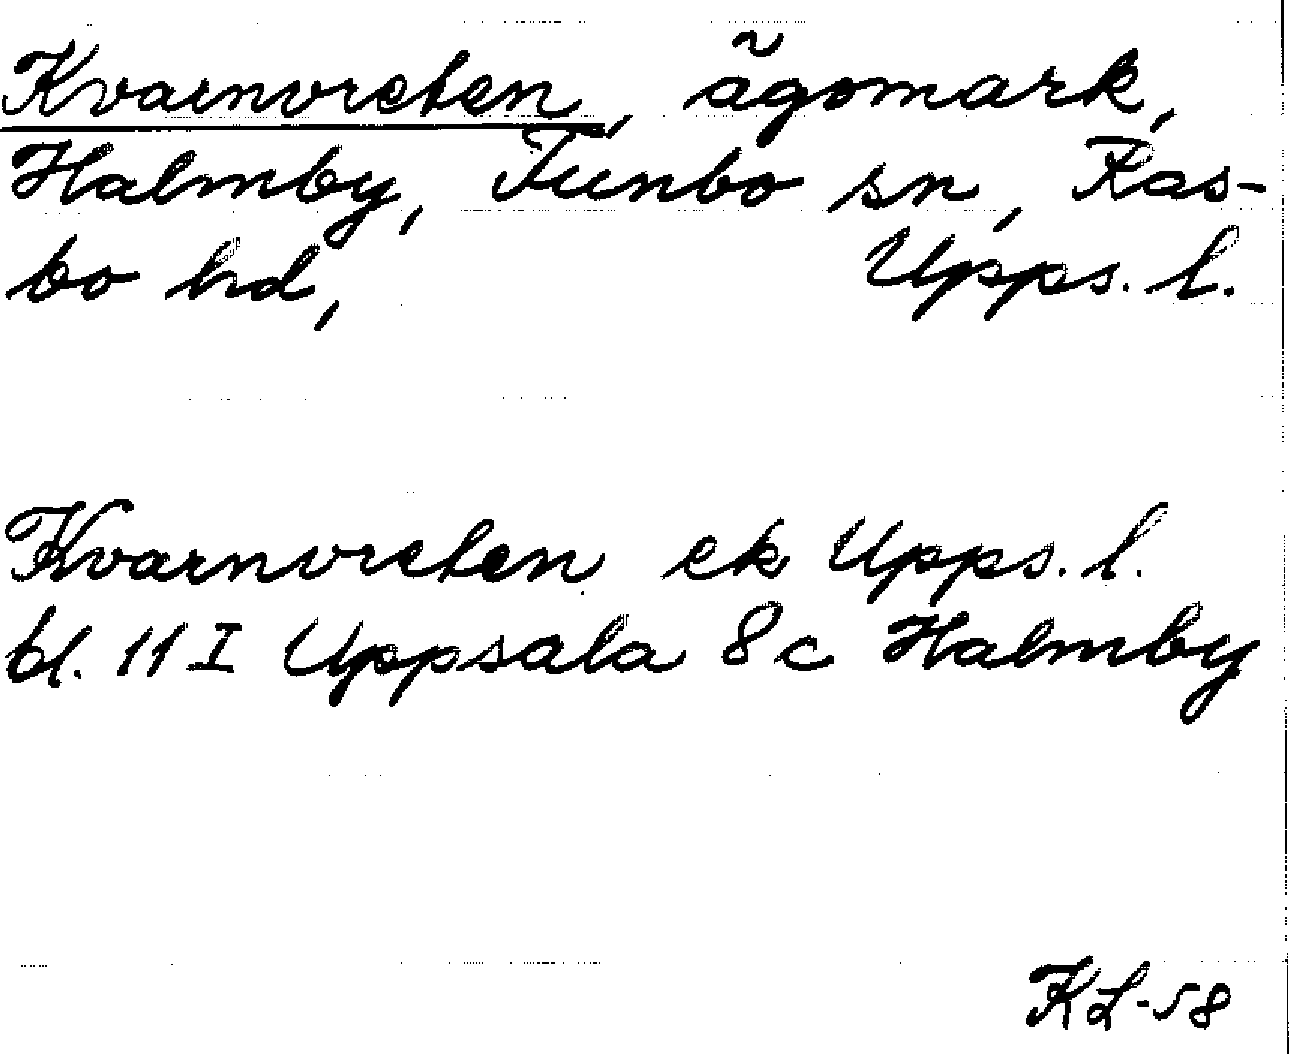 Kvarnvreten, ägomark,
Halmby, Funbo sn, Ras-
bo hd, Upps. l.
Kvarnvreten ek Upps. l.
bl. 11 I Uppsala 8c Halmby
KL-58